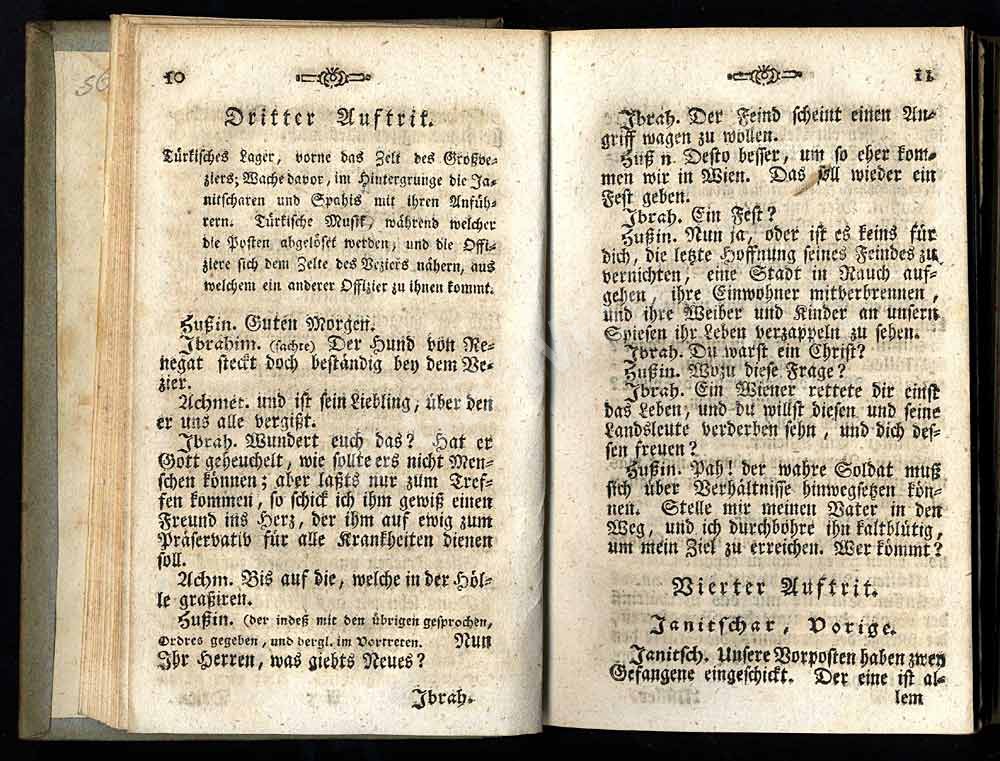 56
10
Dritter Auftrit.
Türkisches Lager, vorne das Zelt des Großve-
ziers; Wache davor, im Hintergrunge die Ja-
nitscharen und Spahis mit ihren Anfüh-
rern. Türkische Musik, während welcher
die Posten abgelöset werden, und die Offi-
ziere sich dem Zelte des Veziers nähern, aus
welchem ein anderer Offizier zu ihnen kommt.
Hußin. Guten Morgen.
Ibrahim. (sachte) Der Hund von Re-
negat steckt doch beständig bey dem Ve-
zier.
Achmet. und ist sein Liebling, über den
er uns alle vergißt.
Ibrah. Wundert euch das? Hat er
Gott geheuchelt, wie sollte ers nicht Men-
schen können; aber laßts nur zum Tref-
fen kommen, so schick ich ihm gewiß einen
Freund ins Herz, der ihm auf ewig zum
Präservativ für alle Krankheiten dienen
soll.
Achm. Bis auf die, welche in der Höl-
le graßiren.
Hußin. (der indeß mit den übrigen gesprochen,
Ordres gegeben, und dergl. im Vortreten. Nun
Ihr Herren, was giebts Neues?
Ibrah.
11
Ibrah. Der Feind scheint einen An-
griff wagen zu wollen.
Hußn. Desto besser, um so eher kom-
men wir in Wien. Das soll wieder ein
Fest geben.
Ibrah. Ein Fest?
Hußin. Nun ja, oder ist es keins für
dich, die letzte Hoffnung seines Feindes zu
vernichten, eine Stadt in Rauch auf-
gehen, ihre Einwohner mitverbrennen,
und ihre Weiber und Kinder an unsern
Spiesen ihr Leben verzappeln zu sehen.
Ibrah. Du warst ein Christ?
Hußin. Wozu diese Frage?
Ibrah. Ein Wiener rettete dir einst
das Leben, und du willst diesen und seine
Landsleute verderben sehn, und dich des-
sen freuen?
Hußin. Pah! der wahre Soldat muß
sich über Verhältnisse hinwegsetzen kön-
nen. Stelle mir meinen Vater in den
Weg, und ich durchbohre ihn kaltblütig,
um mein Ziel zu erreichen. Wer kömmt?
Vierter Auftrit.
Janitschar, Vorige.
Janitsch. Unsere Vorposten haben zwey
Gefangene eingeschickt. Der eine ist al-
lem